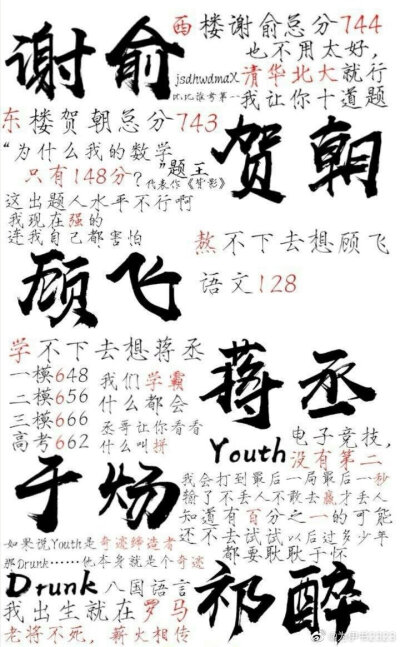 谢俞
西楼谢俞总分744
也不用太好，
jsdhwdmaX 清华北大就行
比比谁考第一 我让你十道题
东楼贺朝总分743
“为什么我的数学
只有148分？”
题王
代表作《背影》
这出题人水平不行啊
我现在强的
连我自己都害怕
贺朝
熬不下去想顾飞
语文128
顾飞
学不下去想蒋丞
一模648
二模656
三模666
高考662
我们学霸
什么都会
丞哥让你看看
什么叫拼
蒋丞
Youth 电子竞技，
没有第二
于炀
我会打到最后一局最后一秒
输了不丢人不敢去赢才丢人
知道有百分之一的可能
还不去试试以后过多少年
都要耿耿于怀
如果说Youth是奇迹缔造者
那Drunk……他本身就是个奇迹
Drunk 八国语言
我出生就在罗马
老将不死，薪火相传
祁醉